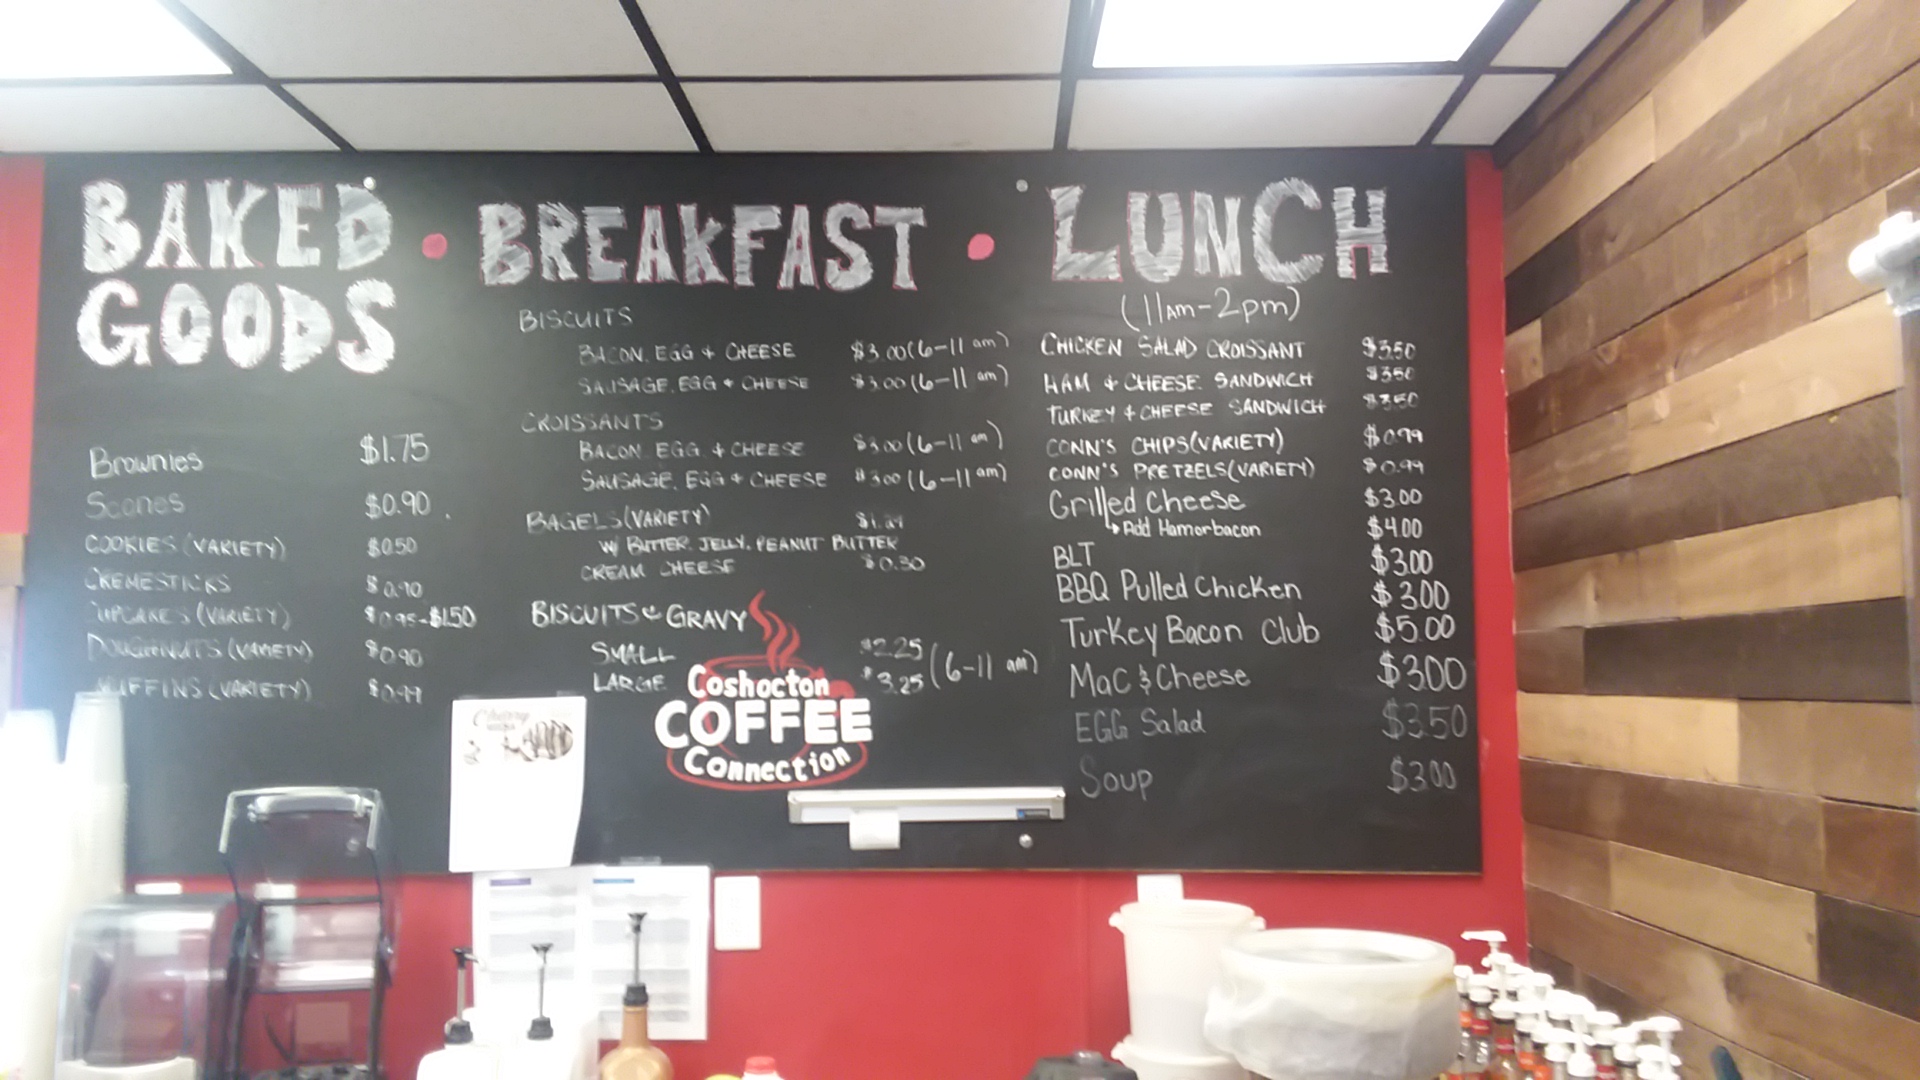 BAKED
GOODS
Brownies $1.75
Scones $0.90
COOKIES (VARIETY) $0.50
CREMESTICKS $0.90
CUPCAKES (VARIETY) $0.95-$1.50
DOUGHNUTS (VARIETY) $0.90
MUFFINS (VARIETY) $0.99
BREAKFAST
BISCUITS
BACON, EGG + CHEESE $3.00 (6-11 am)
SAUSAGE, EGG + CHEESE $3.00 (6-11 am)
CROISSANTS
BACON, EGG, + CHEESE $3.00 (6-11 am)
SAUSAGE, EGG + CHEESE $3.00 (6-11 am)
BAGELS (VARIETY)
W/ BUTTER, JELLY, PEANUT BUTTER
CREAM CHEESE $0.30
BISCUITS & GRAVY
SMALL $2.25
LARGE $3.25 (6-11 am)
Coshocton
COFFEE
Connection
LUNCH
(11am-2pm)
CHICKEN SALAD CROISSANT $3.50
HAM + CHEESE SANDWICH $3.50
TURKEY + CHEESE SANDWICH $3.50
CONN'S CHIPS (VARIETY) $0.99
CONN'S PRETZELS (VARIETY) $0.99
Grilled Cheese $3.00
Add Ham or bacon $4.00
BLT $3.00
BBQ Pulled Chicken $3.00
Turkey Bacon Club $5.00
Mac & Cheese $3.00
EGG Salad $3.50
Soup $3.00
Cherry